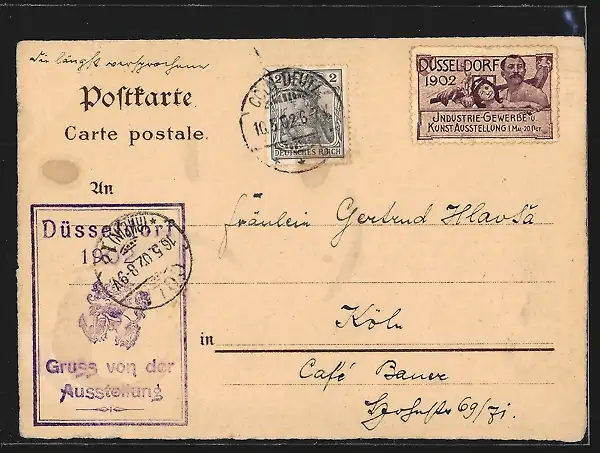 Die längst versprochene
Postkarte.
Carte postale.
2 2
CÖLN-DEUTZ
10.5.02.6-7
DEUTSCHES REICH
DÜSSELDORF
1902
JNDUSTRIE-GEWERBE U.
KUNSTAUSSTELLUNG 1 MAI-20 OCT.
An
Düsseldorf
1902
Gruss von der
Ausstellung
16.5.02.8-9V.
Fräulein Gertrud Hlavsa
in Köln
Café Bauer
69/71.